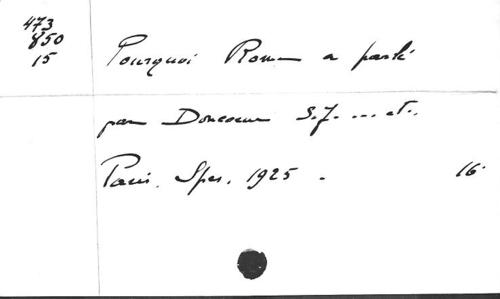 473
850
15
Pourquoi Rome a parlé
par Doncoeur S.J. ... et..
Paris. Spes. 1925 . 16°